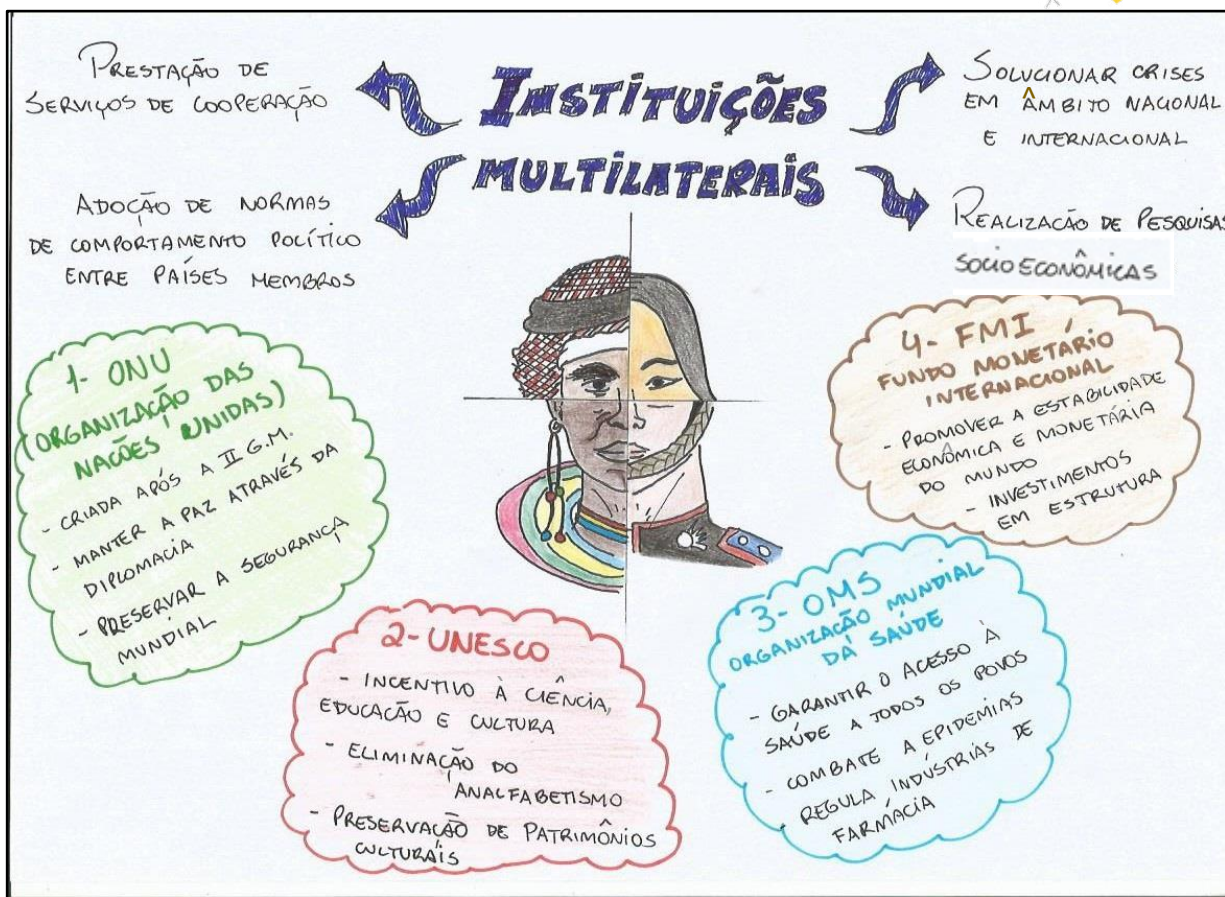 Instituições
multilaterais
Prestação de
serviços de cooperação
Adoção de normas
de comportamento político
entre países membros
Solucionar crises
em âmbito nacional
e internacional
Realização de pesquisas
socioeconômicas
1- ONU
(Organização das
Nações Unidas)
- Criada após a II G.M.
- Manter a paz através da
diplomacia
- Preservar a segurança
mundial
2- UNESCO
- Incentivo à ciência,
educação e cultura
- Eliminação do
analfabetismo
- Preservação de patrimônios
culturais
3- OMS
Organização Mundial
dá Saúde
- Garantir o acesso à
saúde a todos os povos
- Combate a epidemias
- Regula indústrias de
farmácia
4- FMI
Fundo Monetário
Internacional
- Promover a estabilidade
econômica e monetária
do mundo
- Investimentos
em estrutura